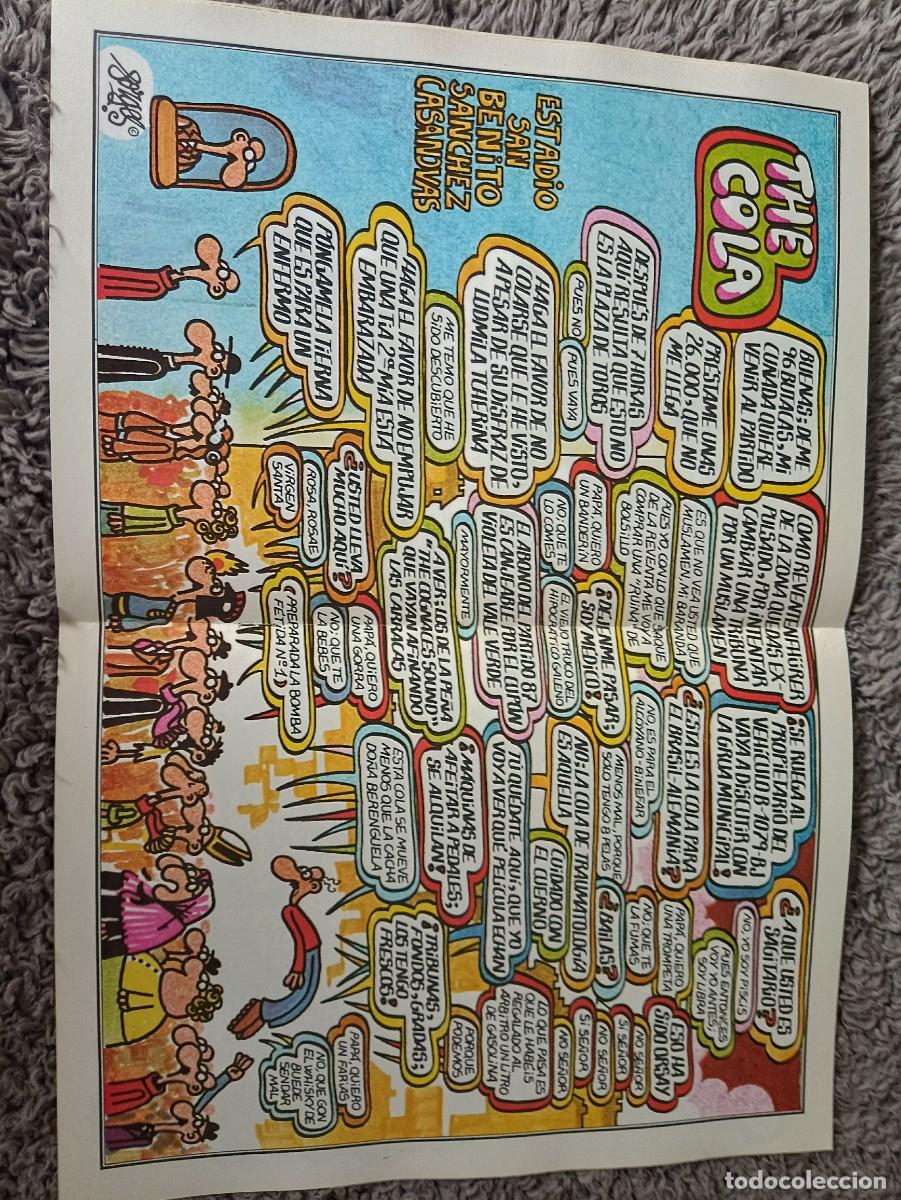 THE
COLA
ESTADIO
SAN
BENITO
SANCHEZ
CASANOVAS
BUENAS; DE ME
96 BUTACAS, MI
CUÑADA QUIERE
VENIR AL PARTIDO
PRESTAME UNAS
26.000, QUE NO
ME LLEGA
DESPUES DE 7 HORAS
AQUI RESULTA QUE ESTO NO
ES LA PLAZA DE TOROS
PUES NO
PUES VAYA
HAGA EL FAVOR DE NO
COLARSE QUE LE HE VISTO,
APESAR DE SU DISFRAZ DE
LUDMILA TCHERINA
ME TEMO QUE HE
SIDO DESCUBIERTO
HAGA EL FAVOR DE NO EMPUJAR
QUE UNA TIA 2ª MIA ESTA
EMBARAZADA
PONGAMELA TIERNA
QUE ES PARA UN
ENFERMO
COMO REVIENTEN FLIKER
DE LA ZOTA QUEDAS EX-
PULSADO, POR INTENTAR
CAMBIAR UNA TRIBUNA
POR UN MUSLAMEN
ES QUE NO VEA USTED QUE
MUSLAMEN, MI BRIANDA
PUES YO, CON LO QUE SAQUE
DE LA REVENTA ME VOY A
COMPRAR UNA "RUINA" DE
BOLSILLO
PAPA, QUIERO
UN BANDERIN
NO, QUE TE
LO COMES
¡DEJENME PASAR;
SOY MEDICO!
EL VIEJO TRUCO DEL
HIPOCRATICO GALENO
EL ABONO DEL PARTIDO 87
ES CANJEABLE POR EL CUPON
VIOLETO DEL VALE VERDE
MAYORMENTE
"A VER; LOS DE LA PEÑA
"THE COGNACES SOUND",
QUE VAYAN AFINANDO
LAS CARRACAS
¿USTED LLEVA
MUCHO AQUI?
ROSA, ROSAE
VIRGEN
SANTA
PAPA, QUIERO
UNA GORRA
NO; QUE TE
LA BEBES
PREPARADA LA BOMBA
FETIDA Nº 1
¡SE RUEGA AL
PROPIETARIO DEL
VEHICULO B-1079-BJ
VAYA A DISCUTIR CON
LA GRUA MUNICIPAL!
¿ESTA ES LA COLA PARA
EL BRASIL-ALEMANIA?
NO, ES PARA EL
ALCOYANO-BINEFAR
MENOS MAL, PORQUE
SOLO TENGO 8 PELAS
NO; LA COLA DE TRAUMATOLOGIA
ES AQUELLA
CUIDADO CON
EL CUERNO
¿BAILAS?
TU QUEDATE AQUI, QUE YO
VOY A VER QUE PELICULA ECHAN
¡MAQUINAS DE
AFEITAR A PEDALES;
SE ALQUILAN!
ESTA COLA SE MUEVE
MENOS QUE LA CACHA
DORA BERENGUELA
¿A QUE USTED ES
SAGITARIO?
NO, YO SOY PISCIS
PUES ENTONCES
VOY YO ANTES,
SOY LIBRA
PAPA, QUIERO
UNA TROMPETA
NO, QUE TE
LA FUMAS
ESO HA
SIDO ORSAY
NO SEÑOR
SI SEÑOR
NO SEÑOR
SI SEÑOR
NO SEÑOR
LO QUE PASA ES
QUE LE HABEIS
REGALADO AL
ARBITRO UN LITRO
DE GASOLINA
PORQUE
PODEMOS
¡TRIBUNAS,
FONDOS, GRADAS;
LOS TENGO
FRESCOS!
PAPA, QUIERO
UN FARIAS
NO, QUE CON
EL WHISKY TE
PUEDE
SENTAR
MAL
todocoleccion